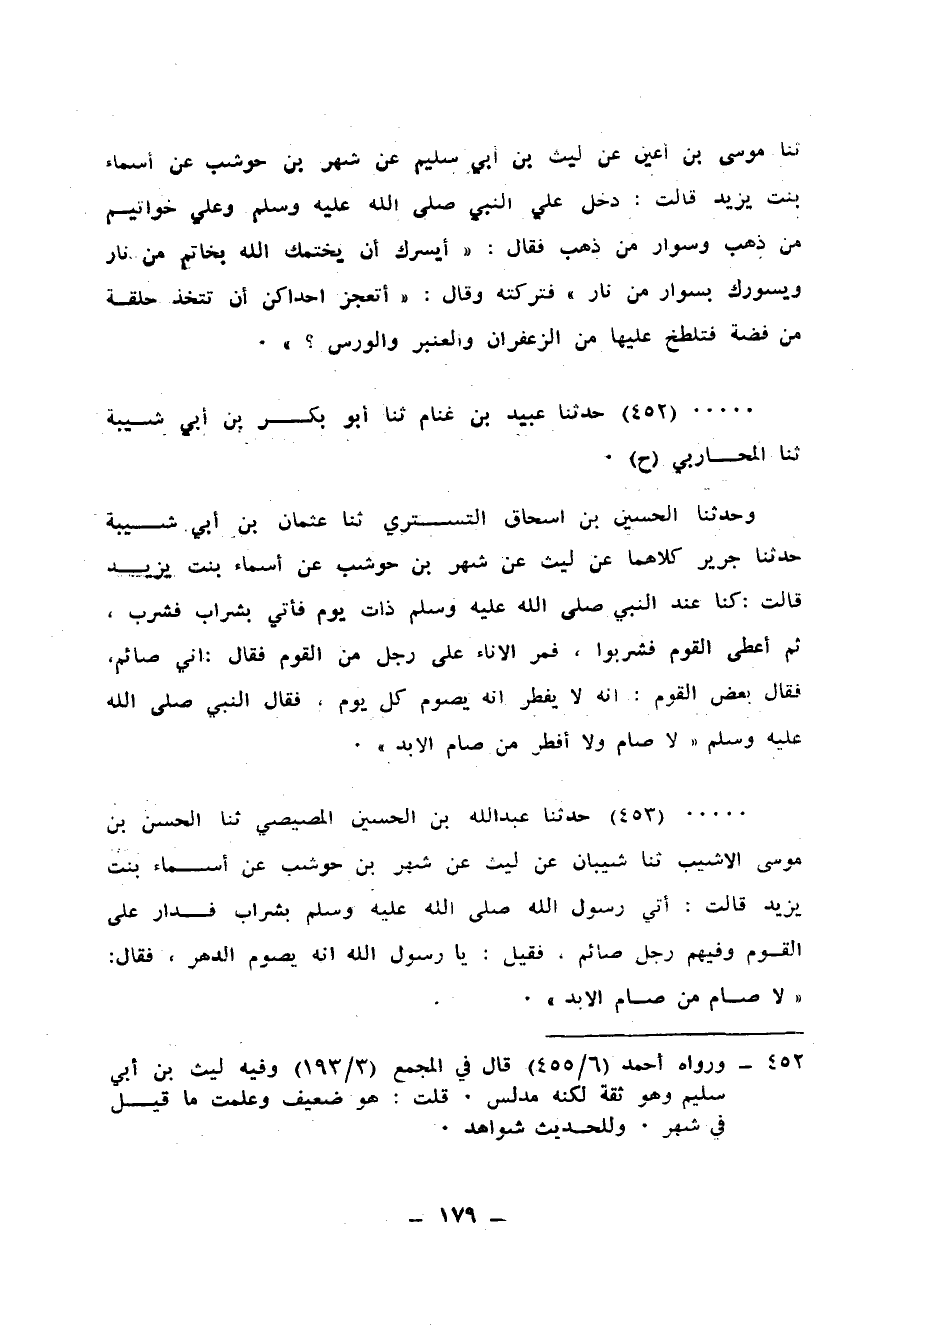 ثنا موسى بن أعين عن ليث بن أبي سليم عن شهر بن حوشب عن أسماء
بنت يزيد قالت : دخل علي النبي صلى الله عليه وسلم وعلي خواتيم
من ذهب وسوار من ذهب فقال : « أيسرك أن يختمك الله بخاتم من نار
ويسورك بسوار من نار » فتركته وقال : « أتعجز احداكن أن تتخذ حلقة
من فضة فتلطخ عليها من الزعفران والعنبر والورس ؟ » ٠
٠٠٠٠٠ (٤٥٢) حدثنا عبيد بن غنام ثنا أبو بكر بن أبي شيبة
ثنا المحاربي (ح) ٠
وحدثنا الحسين بن اسحاق التستري ثنا عثمان بن أبي شيبة
حدثنا جرير كلاهما عن ليث عن شهر بن حوشب عن أسماء بنت يزيد
قالت :كنا عند النبي صلى الله عليه وسلم ذات يوم فأتي بشراب فشرب ،
ثم أعطى القوم فشربوا ، فمر الاناء على رجل من القوم فقال :اني صائم،
فقال بعض القوم : انه لا يفطر انه يصوم كل يوم ، فقال النبي صلى الله
عليه وسلم « لا صام ولا أفطر من صام الابد » ٠
٠٠٠٠٠ (٤٥٣) حدثنا عبدالله بن الحسين المصيصي ثنا الحسن بن
موسى الاشيب ثنا شيبان عن ليث عن شهر بن حوشب عن أسماء بنت
يزيد قالت : أتي رسول الله صلى الله عليه وسلم بشراب فدار على
القوم وفيهم رجل صائم ، فقيل : يا رسول الله انه يصوم الدهر ، فقال:
« لا صام من صام الابد » ٠
٤٥٢ ـ ورواه أحمد (٤٥٥/٦) قال في المجمع (١٩٣/٣) وفيه ليث بن أبي
سليم وهو ثقة لكنه مدلس ٠ قلت : هو ضعيف وعلمت ما قيل
في شهر ٠ وللحديث شواهد ٠
ـ ١٧٩ ـ